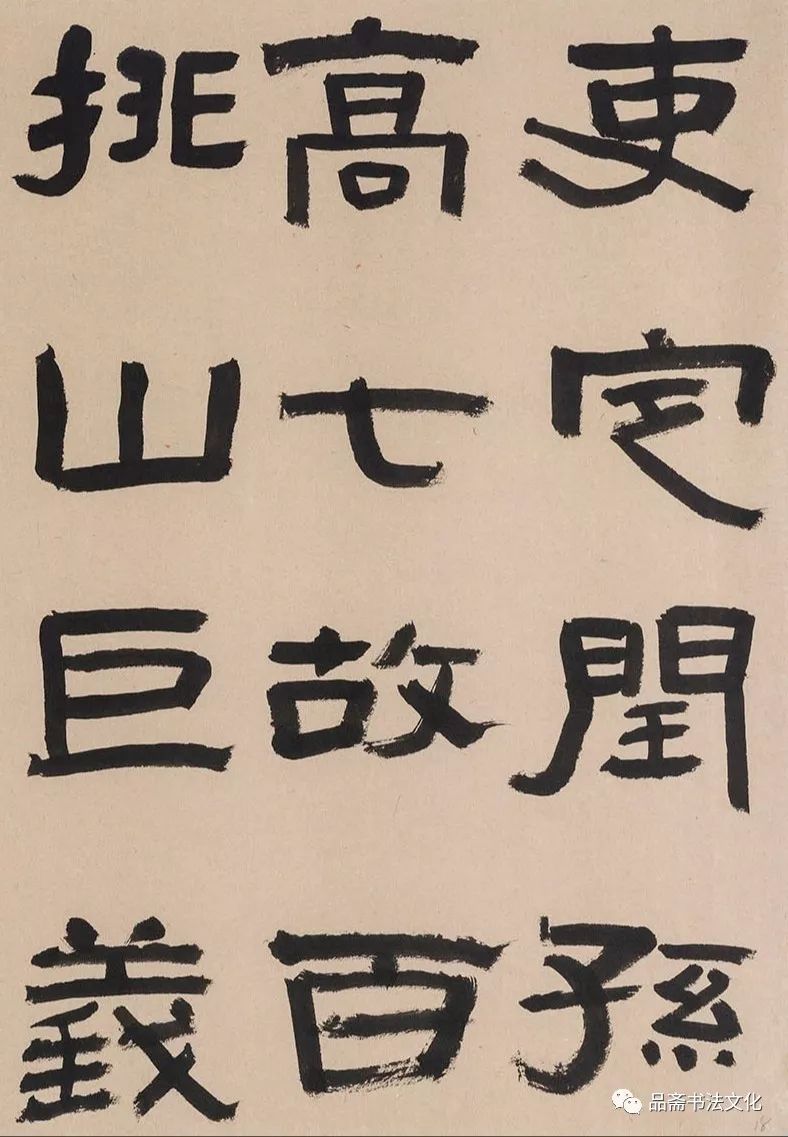 更定閏孫
高七故百
排山巨義
品斋书法文化
18